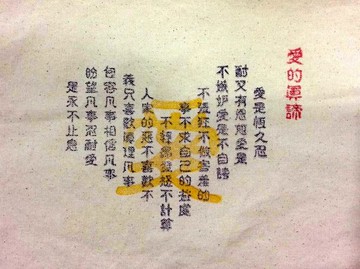 愛的真諦
愛是恆久忍
耐又有恩慈愛是
不嫉妒愛是不自誇
不張狂不做害羞的
事不求自己的益處
不輕易發怒不計算
人家的惡不喜歡不
義只喜歡真理凡事
包容凡事相信凡事
盼望凡事忍耐愛
是永不止息